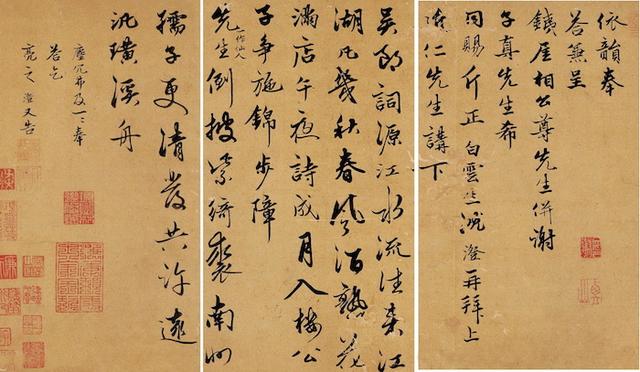 依韻奉
荅兼呈
鐵厓相公尊先生併謝
子真先生希
同賜斤正白雲澄再拜上
仁先生講下
吳郎詞源江水流往來江
湖凡幾秋春風酒熟花
滿店午夜詩成月入樓公
子爭施錦步障
一作仙人
先生倒披紫綺裘南州
孺子更清發共許遠
汎璜溪舟
塵冗弗及一一奉
荅乞
亮之 澄又告